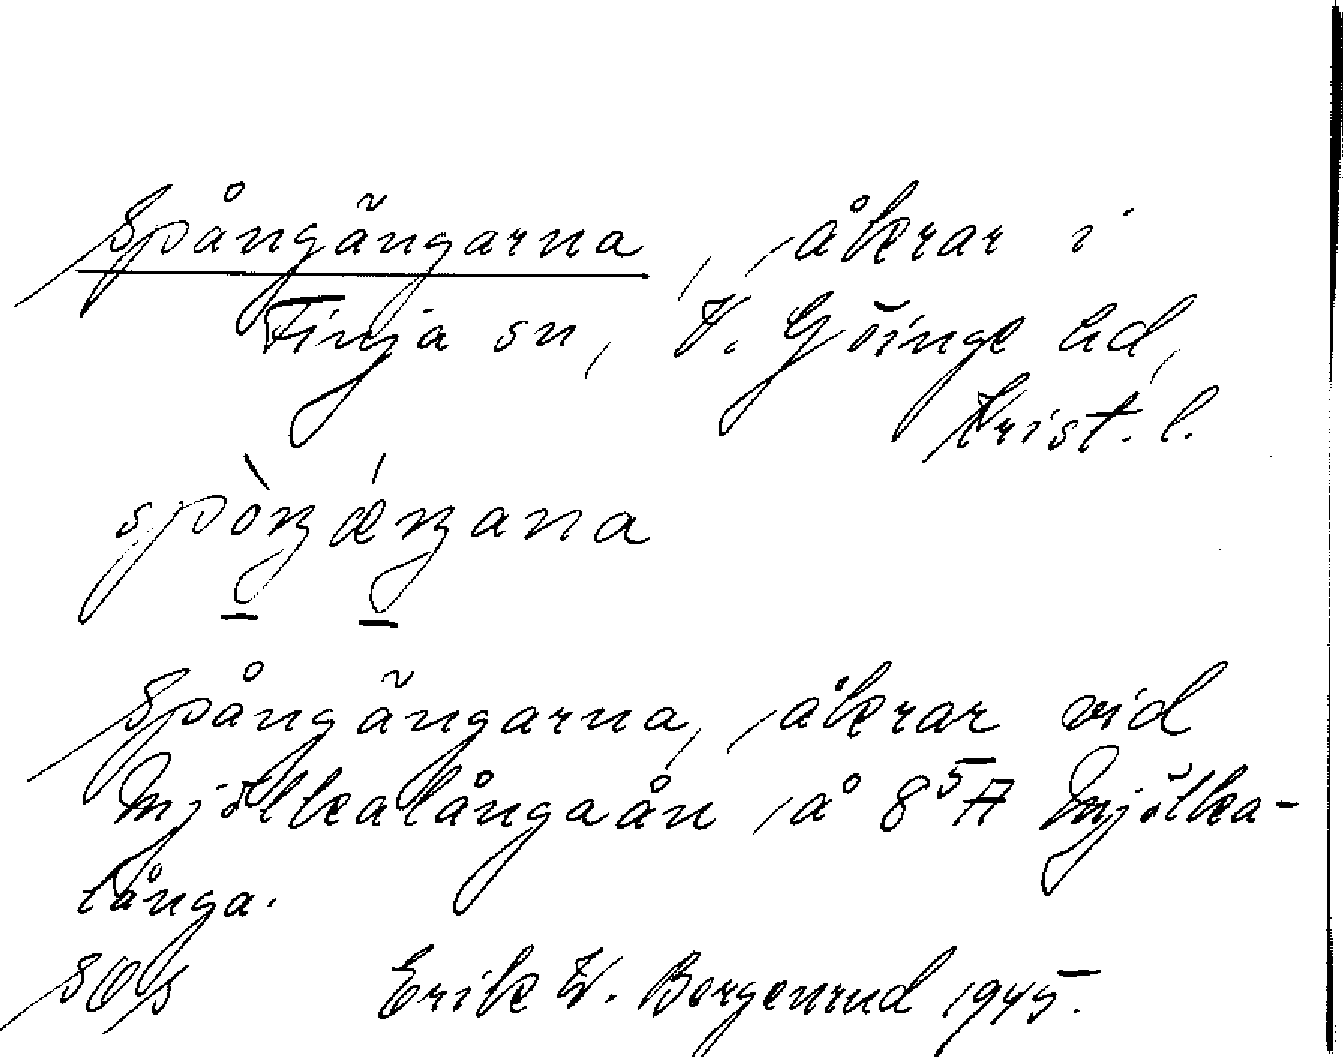 Spångängarna, åkrar i
Finja sn, V. Göinge hd,
Krist. l.
spòŋǽŋana
Spångängarna, åkrar vid
Mjölkalångaån å 8⁵A Mjölka-
långa.
Erik W. Borgenrud 1945.